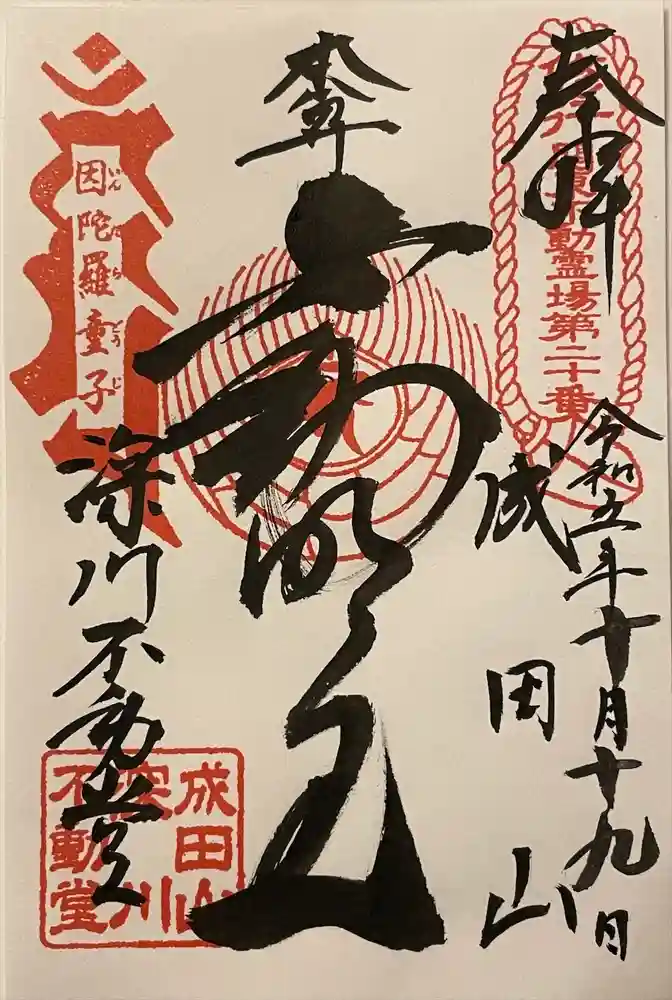 奉拝
関東不動霊場第二十番
令和五年十月十九日
成田山
不動明王
因陀羅童子
いんだらどうじ
深川不動堂
成田山
深川
不動堂